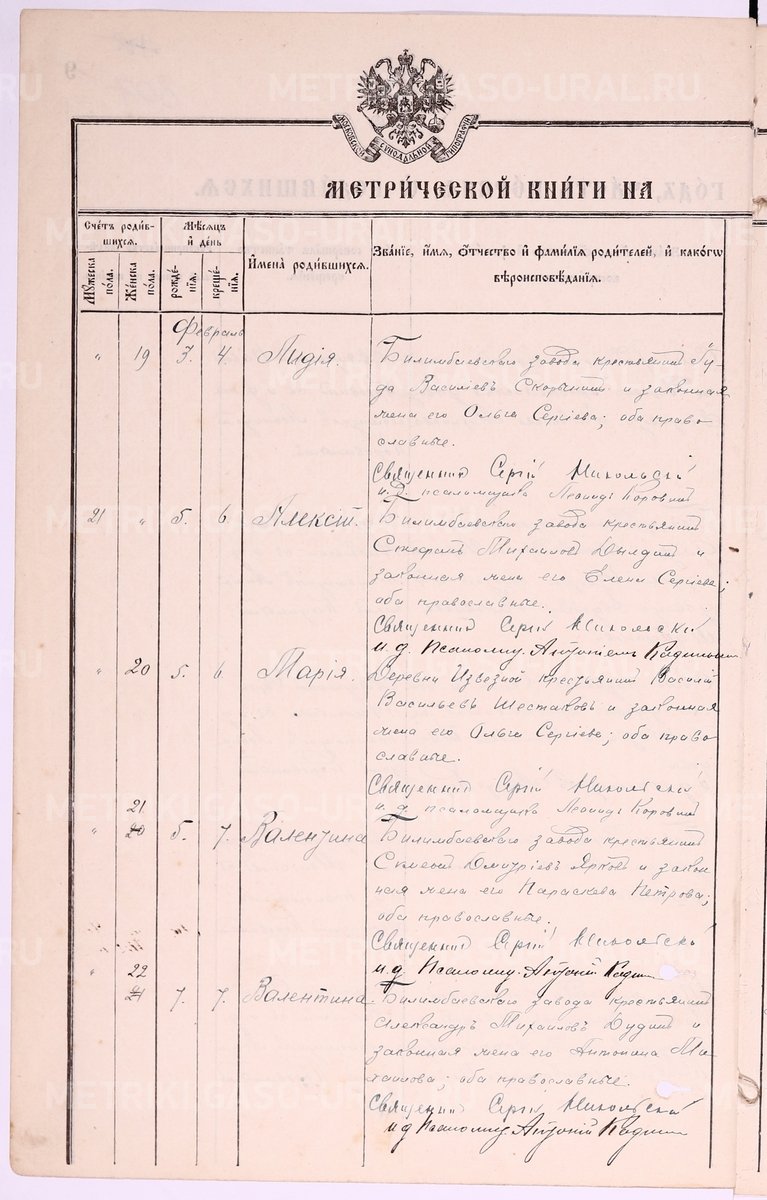 METRICS.GASO-URAL.RU
МОСКОВСКОЙ СѴНОДАЛЬНОЙ ТИПОГРАФІИ
МЕТРИ́ЧЕСКОЙ КНИ́ГИ НА
Сче́тъ роди́вшихся.
Мꙋ́жеска пола. Же́нска пола.
Мѣ́сяцъ и҆ де́нь
рожде́нїѧ. креще́нїѧ.
И҆мена̀ роди́вшихся.
Зва́нїе, и҆́мѧ, ѻ҆́тчество и҆ фами́лїѧ роди́телей, и҆ како́гѡ вѣроисповѣ́данїѧ.
Февраль
" 19 3. 4. Лидія. Билимбаевскаго завода крестьянинъ
да Василіевъ и законная
жена его Ольга Сергіева; оба право
славные.
Священникъ Сергій Никольскій
и. д. псаломщика Леонидъ Коровинъ
21 " 5. 6 Алексій. Билимбаевскаго завода крестьянинъ
Стефанъ Михаиловъ Дылдинъ и
законная жена его Елена Сергіева;
оба православные.
Священникъ Сергій Никольскій
и. д. Псаломщ. Антоній
" 20 5. 6. Марія. Деревни Извезной крестьянинъ Василій
Васильевъ Шестаковъ и законная
жена его Ольга Сергіева; оба право
славные.
Священникъ Сергій Никольскій
и. д. псаломщика Леонидъ Коровинъ
21
" 20 5. 7. Валентина Билимбаевскаго завода крестьянинъ
Симеонъ Димитріевъ Ярковъ и закон
ная жена его Параскева Петрова;
оба православные.
Священникъ Сергій Никольскій
" 22 и. д. Псаломщ. Антоній
21 7. 7. Валентина. Билимбаевскаго завода крестьянинъ
Александръ Михаиловъ Дудинъ и
законная жена его Антонина Ми-
хаилова; оба православные.
Священникъ Сергій Никольскій
и д Псаломщ Антоній